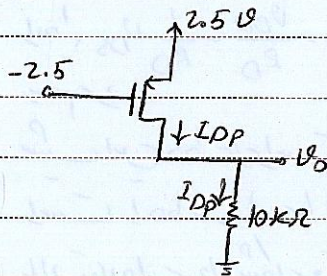 2.5 ϑ
-2.5
↓ I_DP
ϑ_O
I_DP ↓
10kΩ